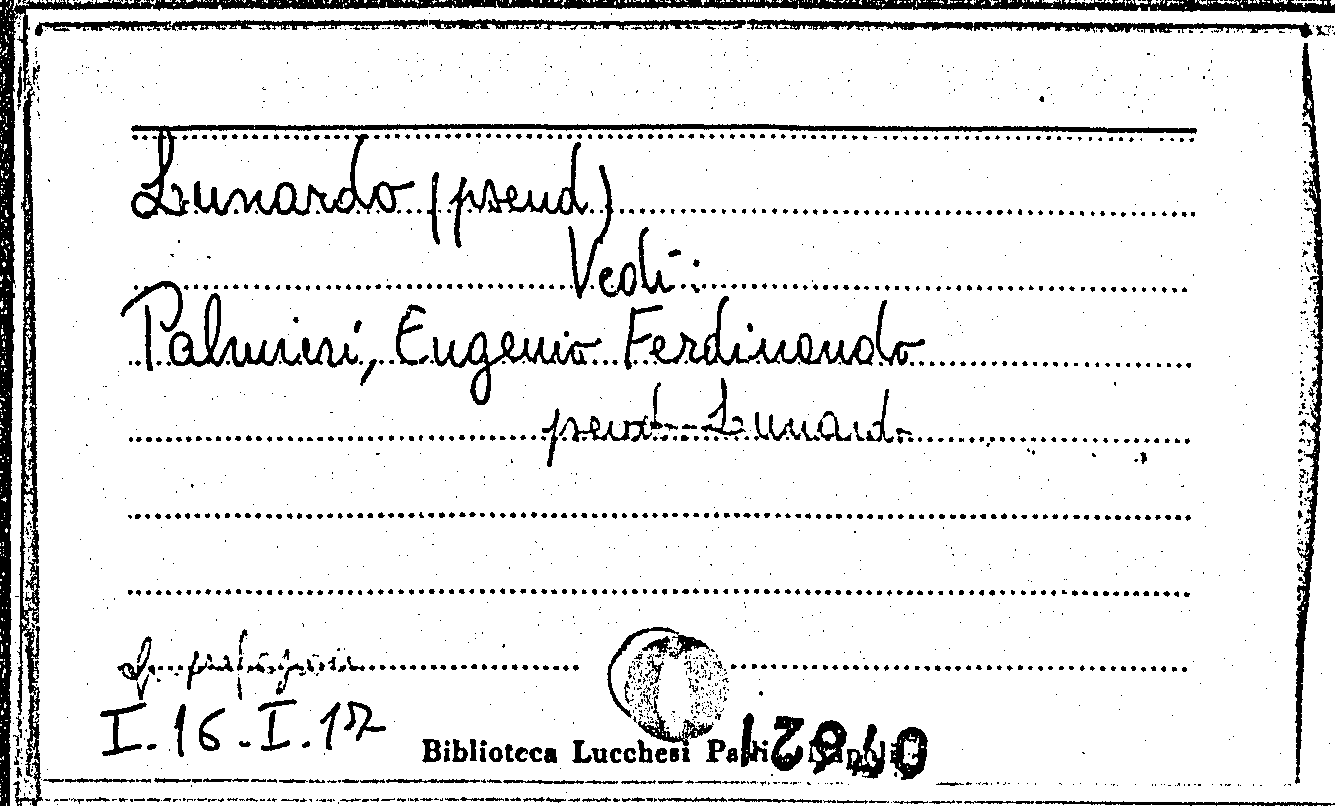 Lunardo (pseud)
Vedi:
Palmieri, Eugenio Ferdinando
pseud. Lunardo
I.16.I.1
Biblioteca Lucchesi Palli Napoli